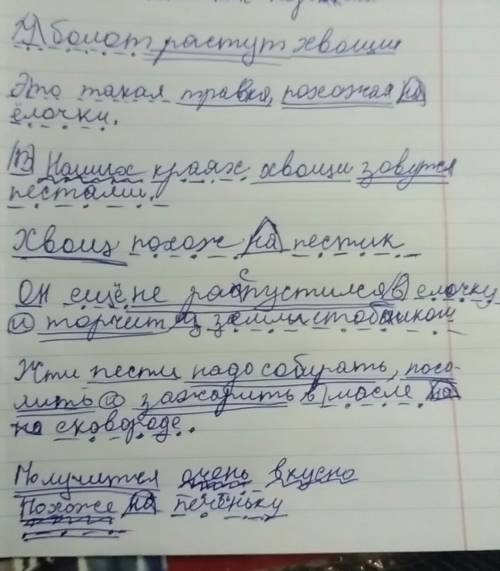 У болот растут хвощи
Это такая травка, похожая на
ёлочки.
В наших краях хвощи зовутся
пестами.
Хвощ похож на пестик
Он ещё не распустился в елочку
и торчит из земли столбиком
Эти пести надо собирать, посо-
лить и зажарить в масле на
на сковороде.
Получится очень вкусно
Похоже на печеньку